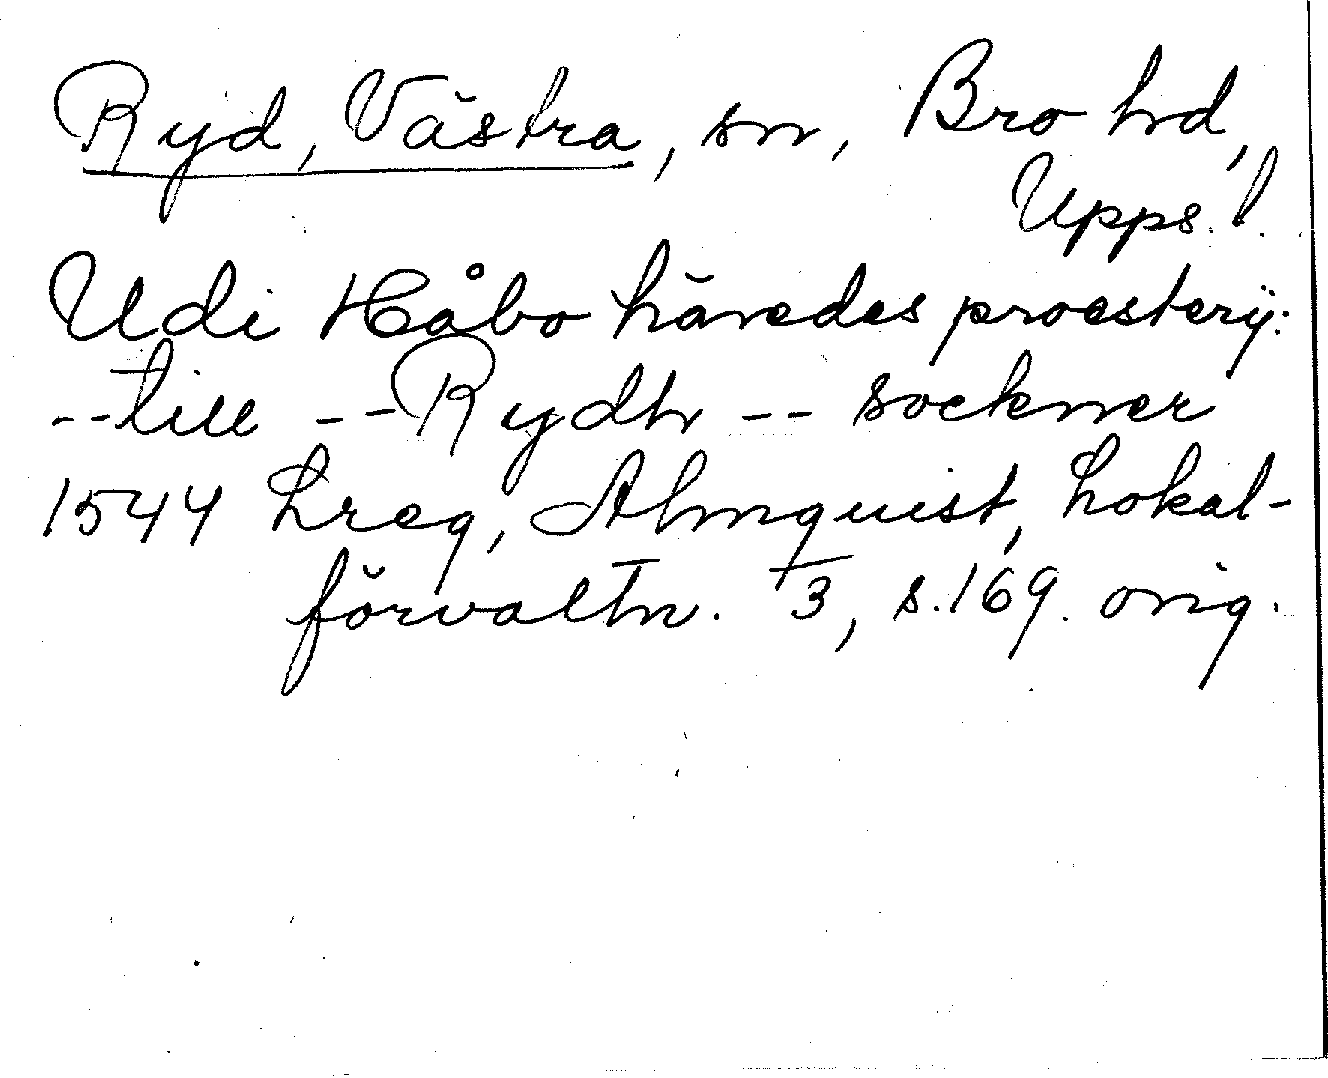 Ryd, Västra, sn, Bro hd,
Upps. l.
Udi Håbo häredes proesterij:
-- till -- Rydh -- sockner
1544 Lreg, Almquist, Lokal-
förvaltn. 3, s. 169. orig.